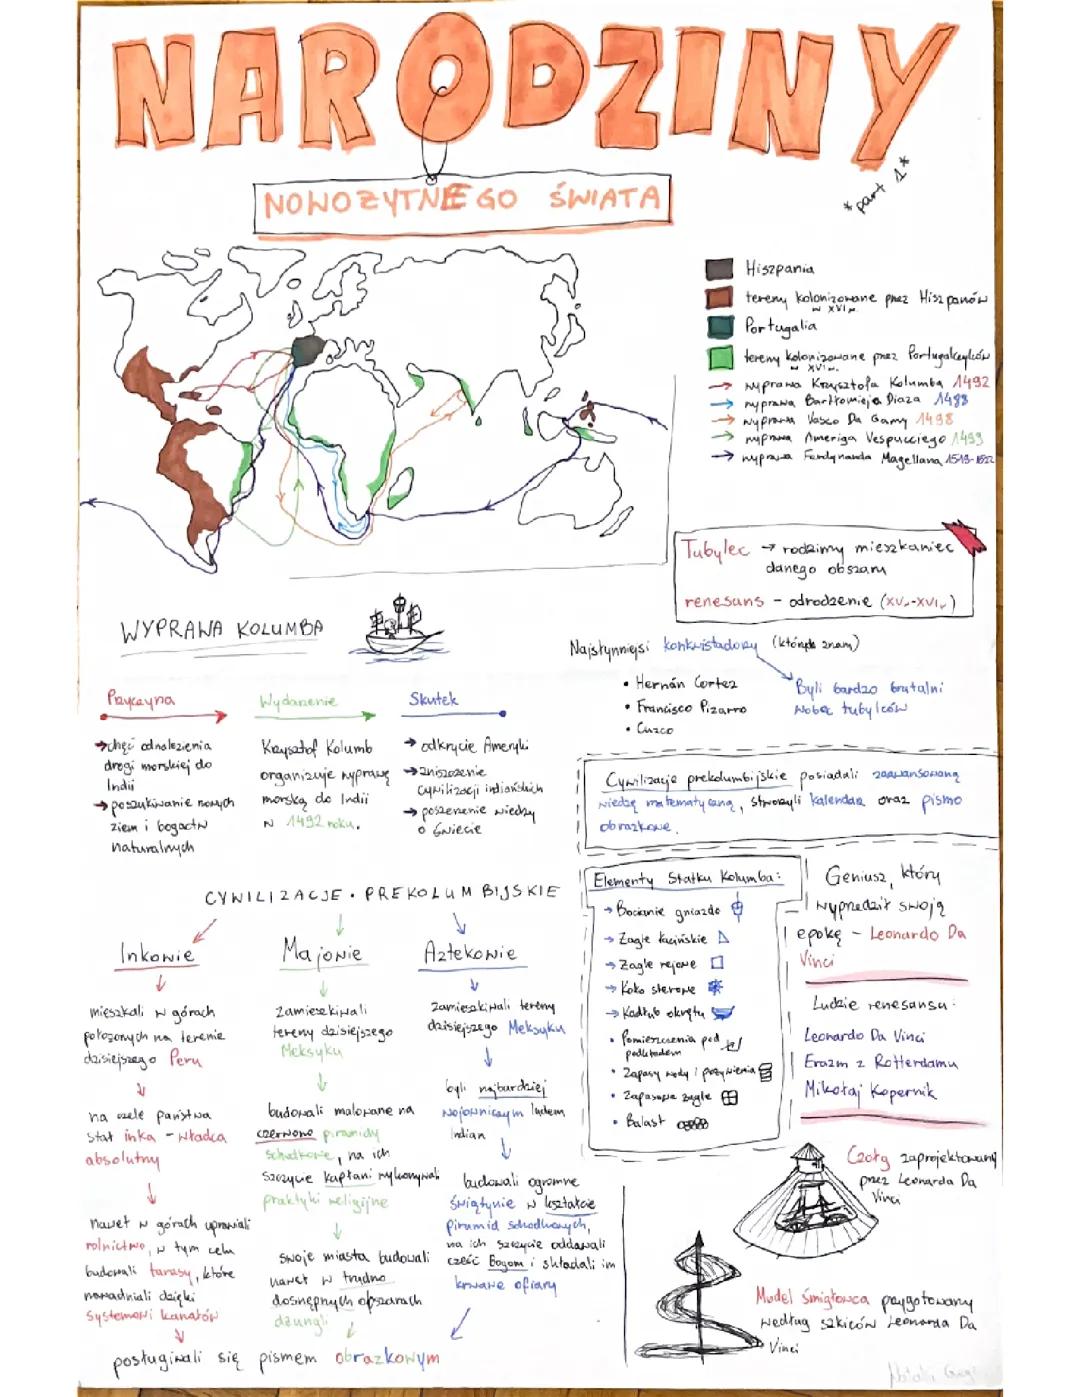 NARODZINY
NOWOZYTNEGO ŚWIATA
*part 1*
Hiszpania
tereny kolonizowane przez Hiszpanów
w XVI w.
Portugalia
tereny kolonizowane przez Portugalczyków
w XVI w.
→ wyprawa Krzysztofa Kolumba 1492
→ wyprawa Bartłomieja Diaza 1488
→ wyprawa Vasco Da Gamy 1498
→ wyprawa Ameriga Vespucciego 1499
→ wyprawa Ferdynanda Magellana 1519-1522
Tubylec → rodzimy mieszkaniec
danego obszaru
renesans - odrodzenie (XV w.-XVI w.)
WYPRAWA KOLUMBA
Przyczyna
→ chęć odnalezienia
drogi morskiej do
Indii
→ poszukiwanie nowych
ziem i bogactw
naturalnych
Wydarzenie
Krzysztof Kolumb
organizuje wyprawę
morską do Indii
w 1492 roku.
Skutek
→ odkrycie Ameryki
→ zniszczenie
cywilizacji indiańskich
→ poszerzenie wiedzy
o świecie
Najsłynniejsi konkwistadorzy (których znam)
• Hernán Cortez
• Francisco Pizarro
• Cuzco
Byli bardzo brutalni
wobec tubylców
Cywilizacje prekolumbijskie posiadali zaawansowaną
wiedzę matematyczną, stworzyli kalendarz oraz pismo
obrazkowe.
CYWILIZACJE • PREKOLUMBIJSKIE
Inkowie
mieszkali w górach
położonych na terenie
dzisiejszego Peru
na czele państwa
stał inka - władca
absolutny
nawet w górach uprawiali
rolnictwo, w tym celu
budowali tarasy, które
nawadniali dzięki
systemowi kanałów
Majowie
zamieszkiwali
tereny dzisiejszego
Meksyku
budowali malowane na
czerwono piramidy
schodkowe, na ich
szczycie kapłani wykonywali
praktyki religijne
swoje miasta budowali
nawet w trudno
dostępnych obszarach
dżungli
Aztekowie
zamieszkiwali tereny
dzisiejszego Meksyku
byli najbardziej
wojowniczym ludem
Indian
budowali ogromne
świątynie w kształcie
piramid schodkowych,
na ich szczycie oddawali
cześć Bogom i składali im
krwawe ofiary
posługiwali się pismem obrazkowym
Elementy Statku Kolumba:
→ Bocianie gniazdo
→ Żagle łacińskie
→ Żagle rejowe
→ Koło sterowe
→ Kadłub okrętu
• Pomieszczenia pod
pokładem
• Zapasy wody i pożywienia
• Zapasowe żagle
• Balast
Geniusz, który
wyprzedził swoją
epokę - Leonardo Da
Vinci
Ludzie renesansu:
Leonardo Da Vinci
Erazm z Rotterdamu
Mikołaj Kopernik
Czołg zaprojektowany
przez Leonarda Da
Vinci
Model śmigłowca przygotowany
według szkiców Leonarda Da
Vinci